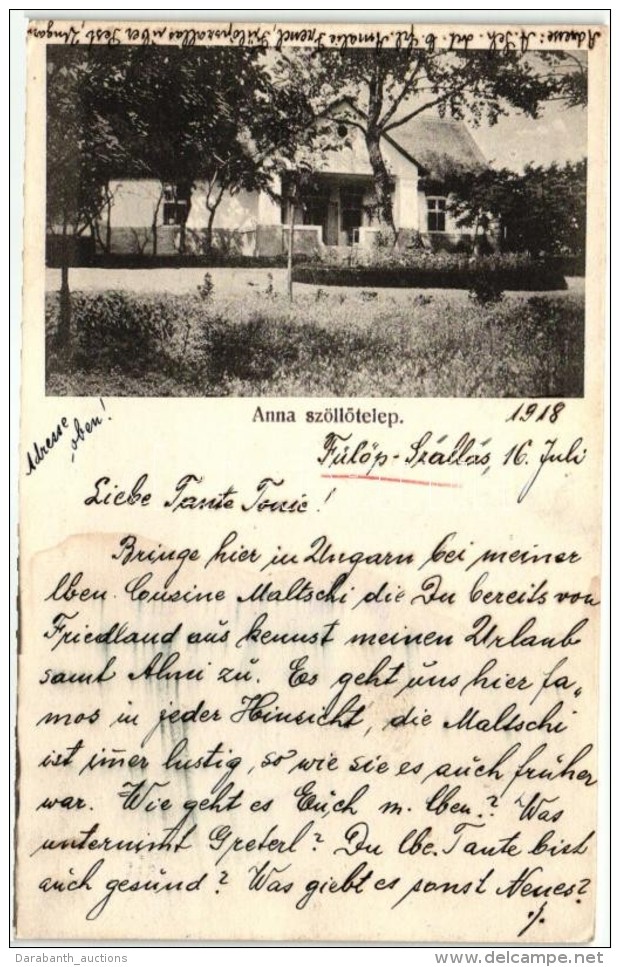 Adresse: A. Sch. drt. C. Frl. Amalie Freml, Fülöpszállás über Pest, Ungarn
Anna szöllőtelep.
1918
Adresse
oben!
Fülöp-Szállás, 16. Juli
Liebe Tante Tonie!
Bringe hier in Ungarn bei meiner
lben. Cousine Maltschi die Du bereits von
Friedland aus kennst meinen Urlaub
samt Almi zu. Es geht uns hier fa„
mos in jeder Hinsicht, die Maltschi
ist im̅er lustig, so wie sie es auch früher
war. Wie geht es Euch m. lben.? Was
unternimt Greterl? Du lbe. Tante bist
auch gesund? Was giebt es sonst Neues?
./.
Darabanth_auctions
www.delcampe.net